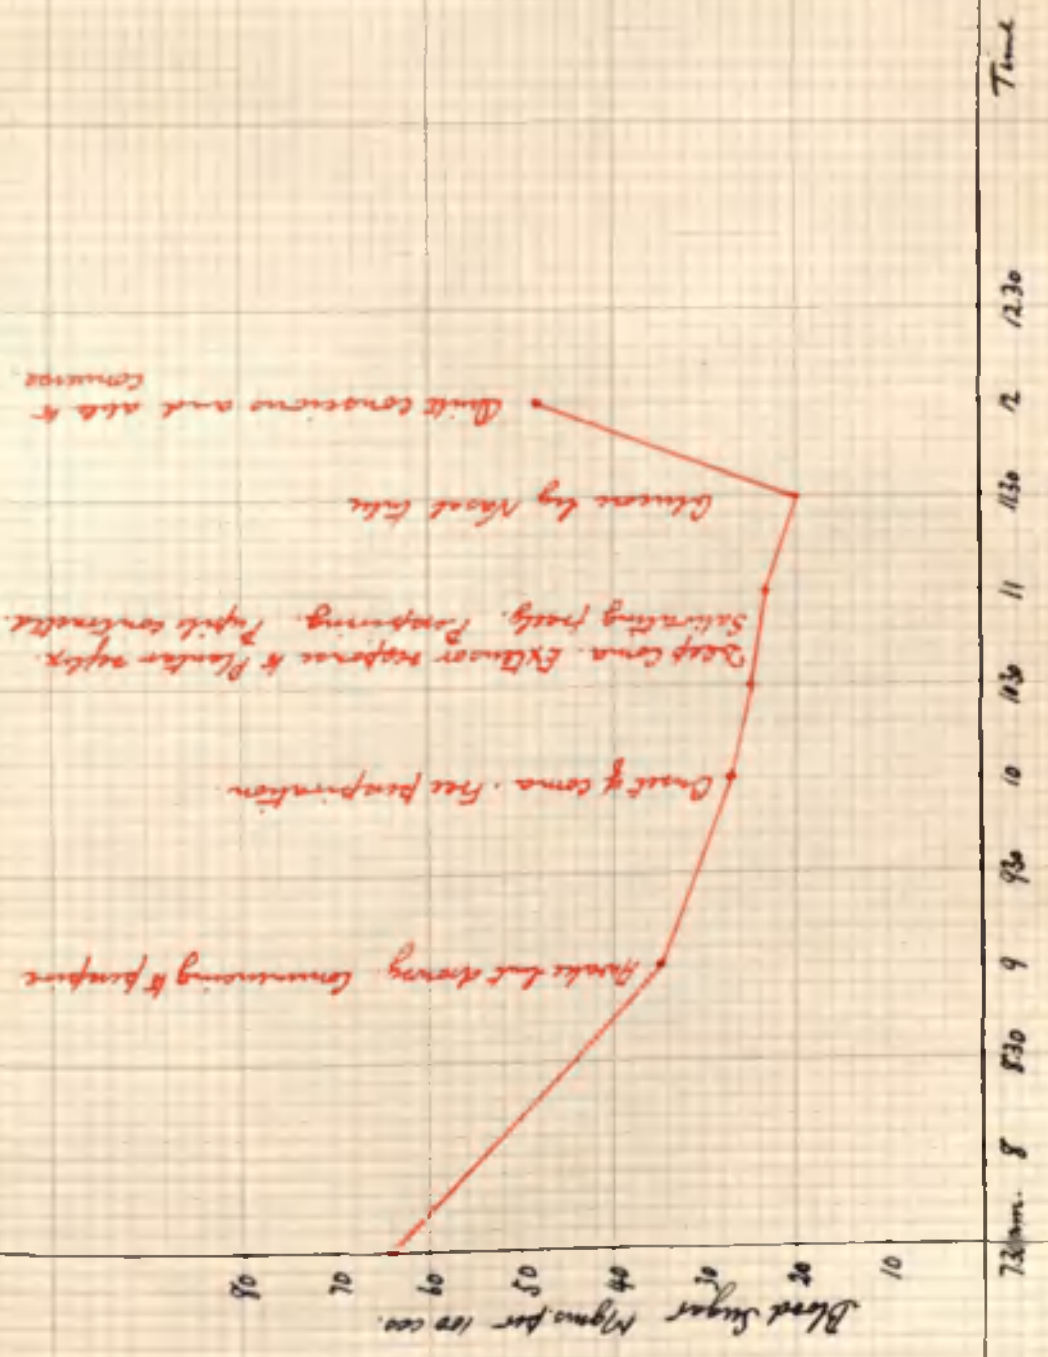 Blood Sugar Mgms. per 100 ccs.
80
70
60
50
40
30
20
10
7.30 am. 8 8.30 9 9.30 10 10.30 11 11.30 12 12.30 Time
Awake but drowsy. Commencing to perspire
Onset of coma. Free perspiration.
Deep Coma. Extensor response to Plantar reflex.
Salivating freely. Perspiring. Pupils contracted.
Glucose by Nasal tube
Quite conscious and able to
converse